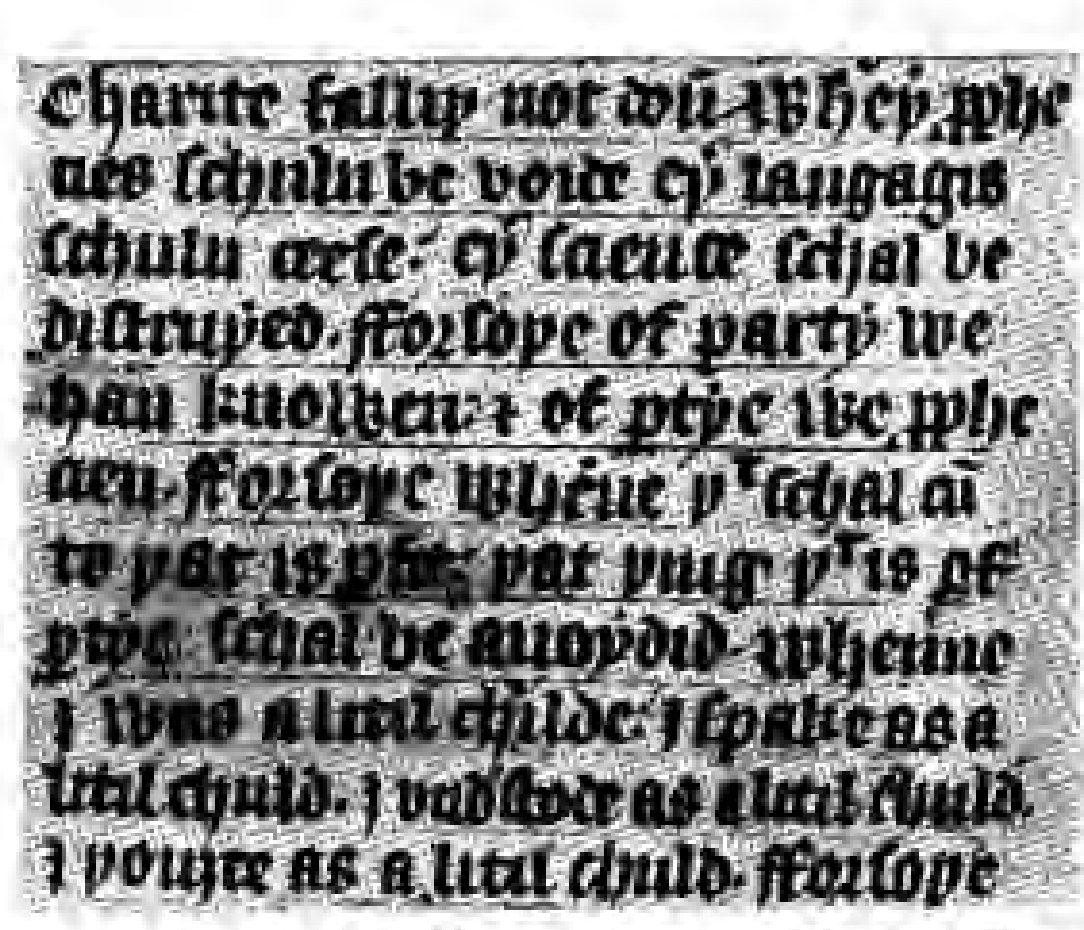 Charite falliþ not doū. Wheþ̵ ꝓphe
cies schuln be voide eþ̵ langagis
schuln ceese: eþ̵ science schal be
distruyed. fforsoþe of party we
han knowen: ⁊ of ꝑtye we ꝓphe
cien. fforsoþe whēne þᵗ schal cū
to þat is ꝑfit: þat þing þᵗ is of
ꝑtye schal be auoydid. Whenne
I was a litil childe: I spake as a
litil chijld. I vndstode as a litil chijld.
I þouȝte as a litil chijld. fforsoþe